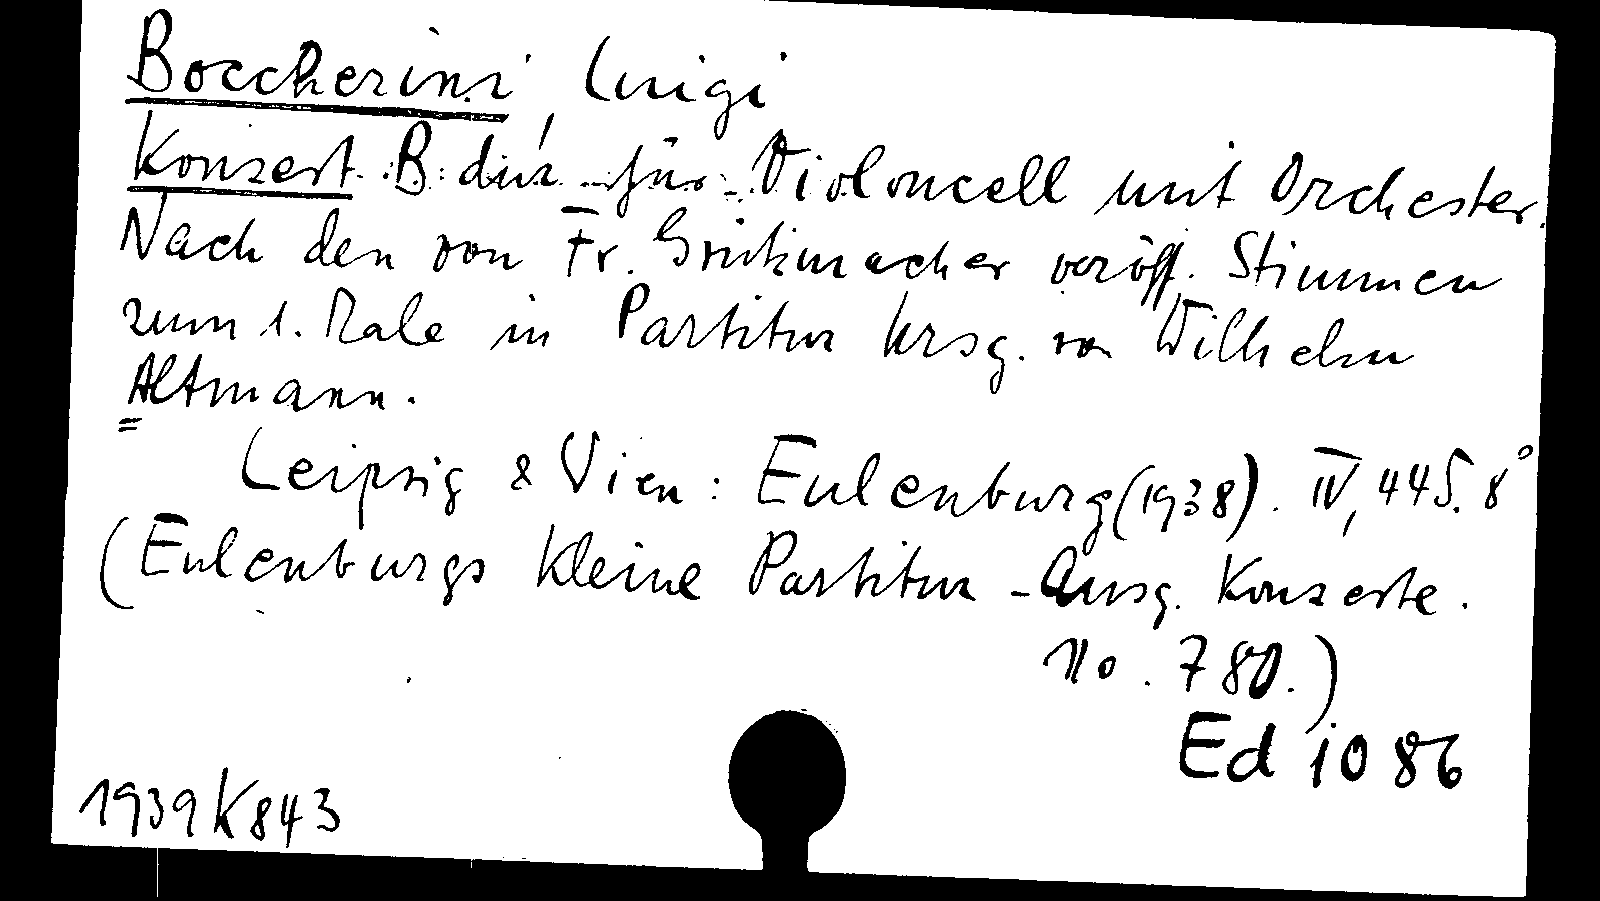 Boccherini, Luigi
Konzert B dur für Violoncell mit Orchester.
Nach den von Fr. Grützmacher veröff. Stimmen
zum 1. Male in Partitur hrsg. von Wilhelm
Altmann.
Leipzig & Wien: Eulenburg (1938). IV, 44 S. 8°
(Eulenburgs kleine Partitur-Ausg. Konzerte.
No. 780.)
Ed 1086
1939 K 843